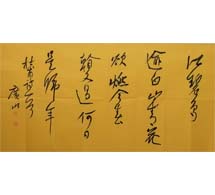 江碧鸟
逾白山青花
欲燃今春
看又过何日
是归年
杜甫诗